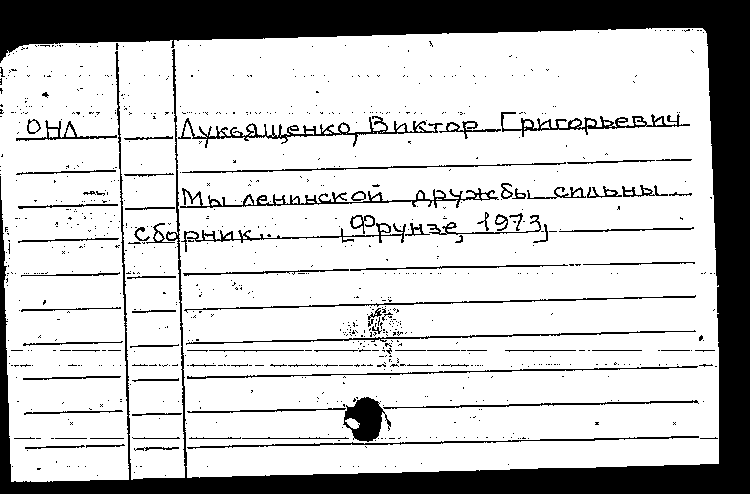 ОНЛ Лукьященко, Виктор Григорьевич
Мы ленинской дружбы сильны..
сборник... [Фрунзе, 1973]